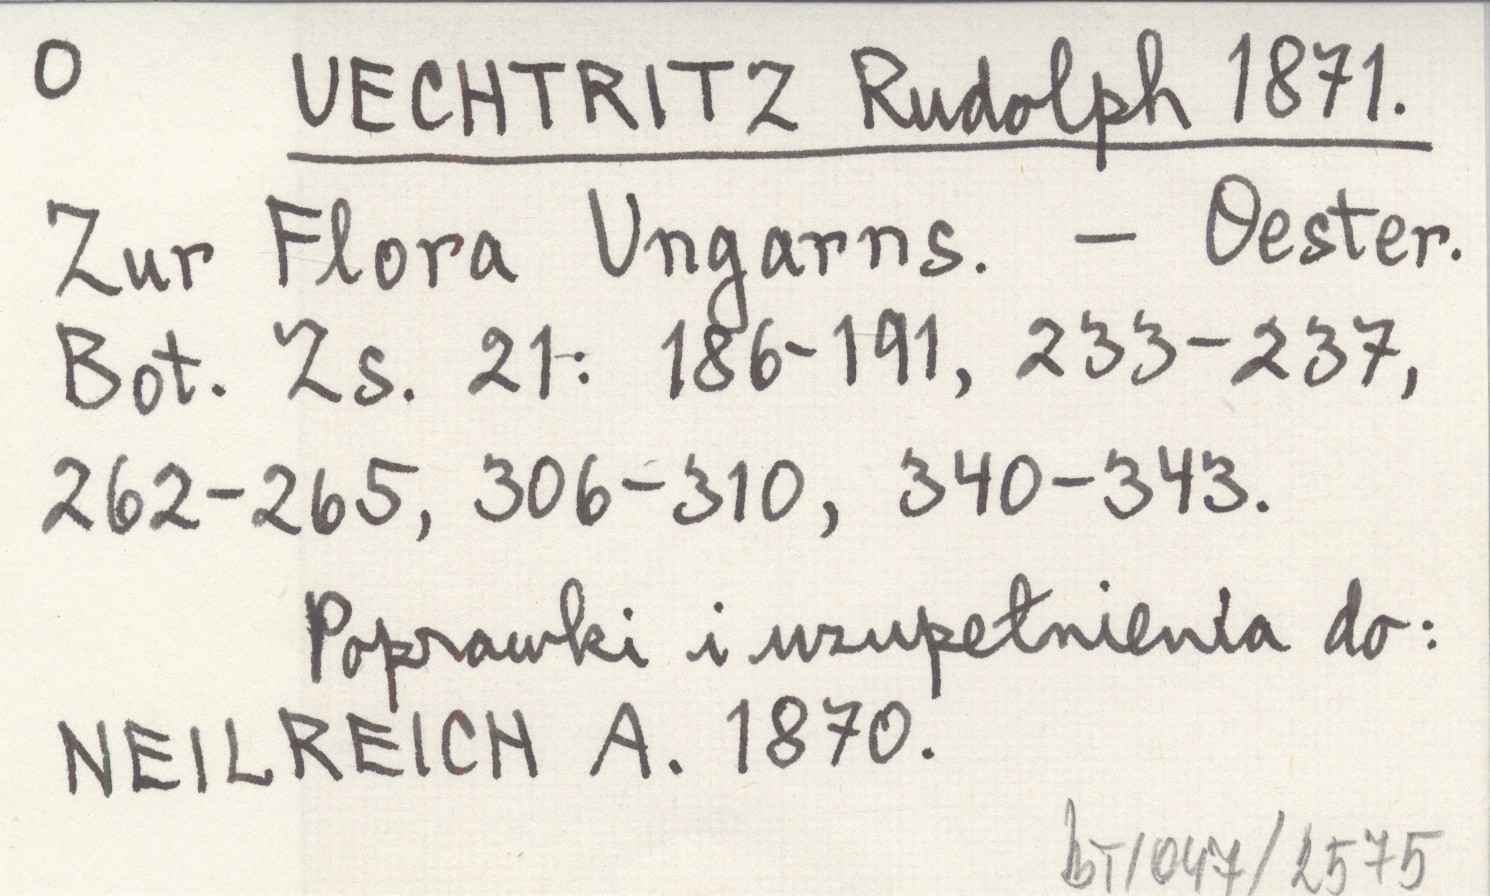 O UECHTRITZ Rudolph 1871.
Zur Flora Ungarns. - Oester.
Bot. Zs. 21: 186-191, 233-237,
262-265, 306-310, 340-343.
Poprawki i uzupełnienia do:
NEILREICH A. 1870.
bT/047/2575